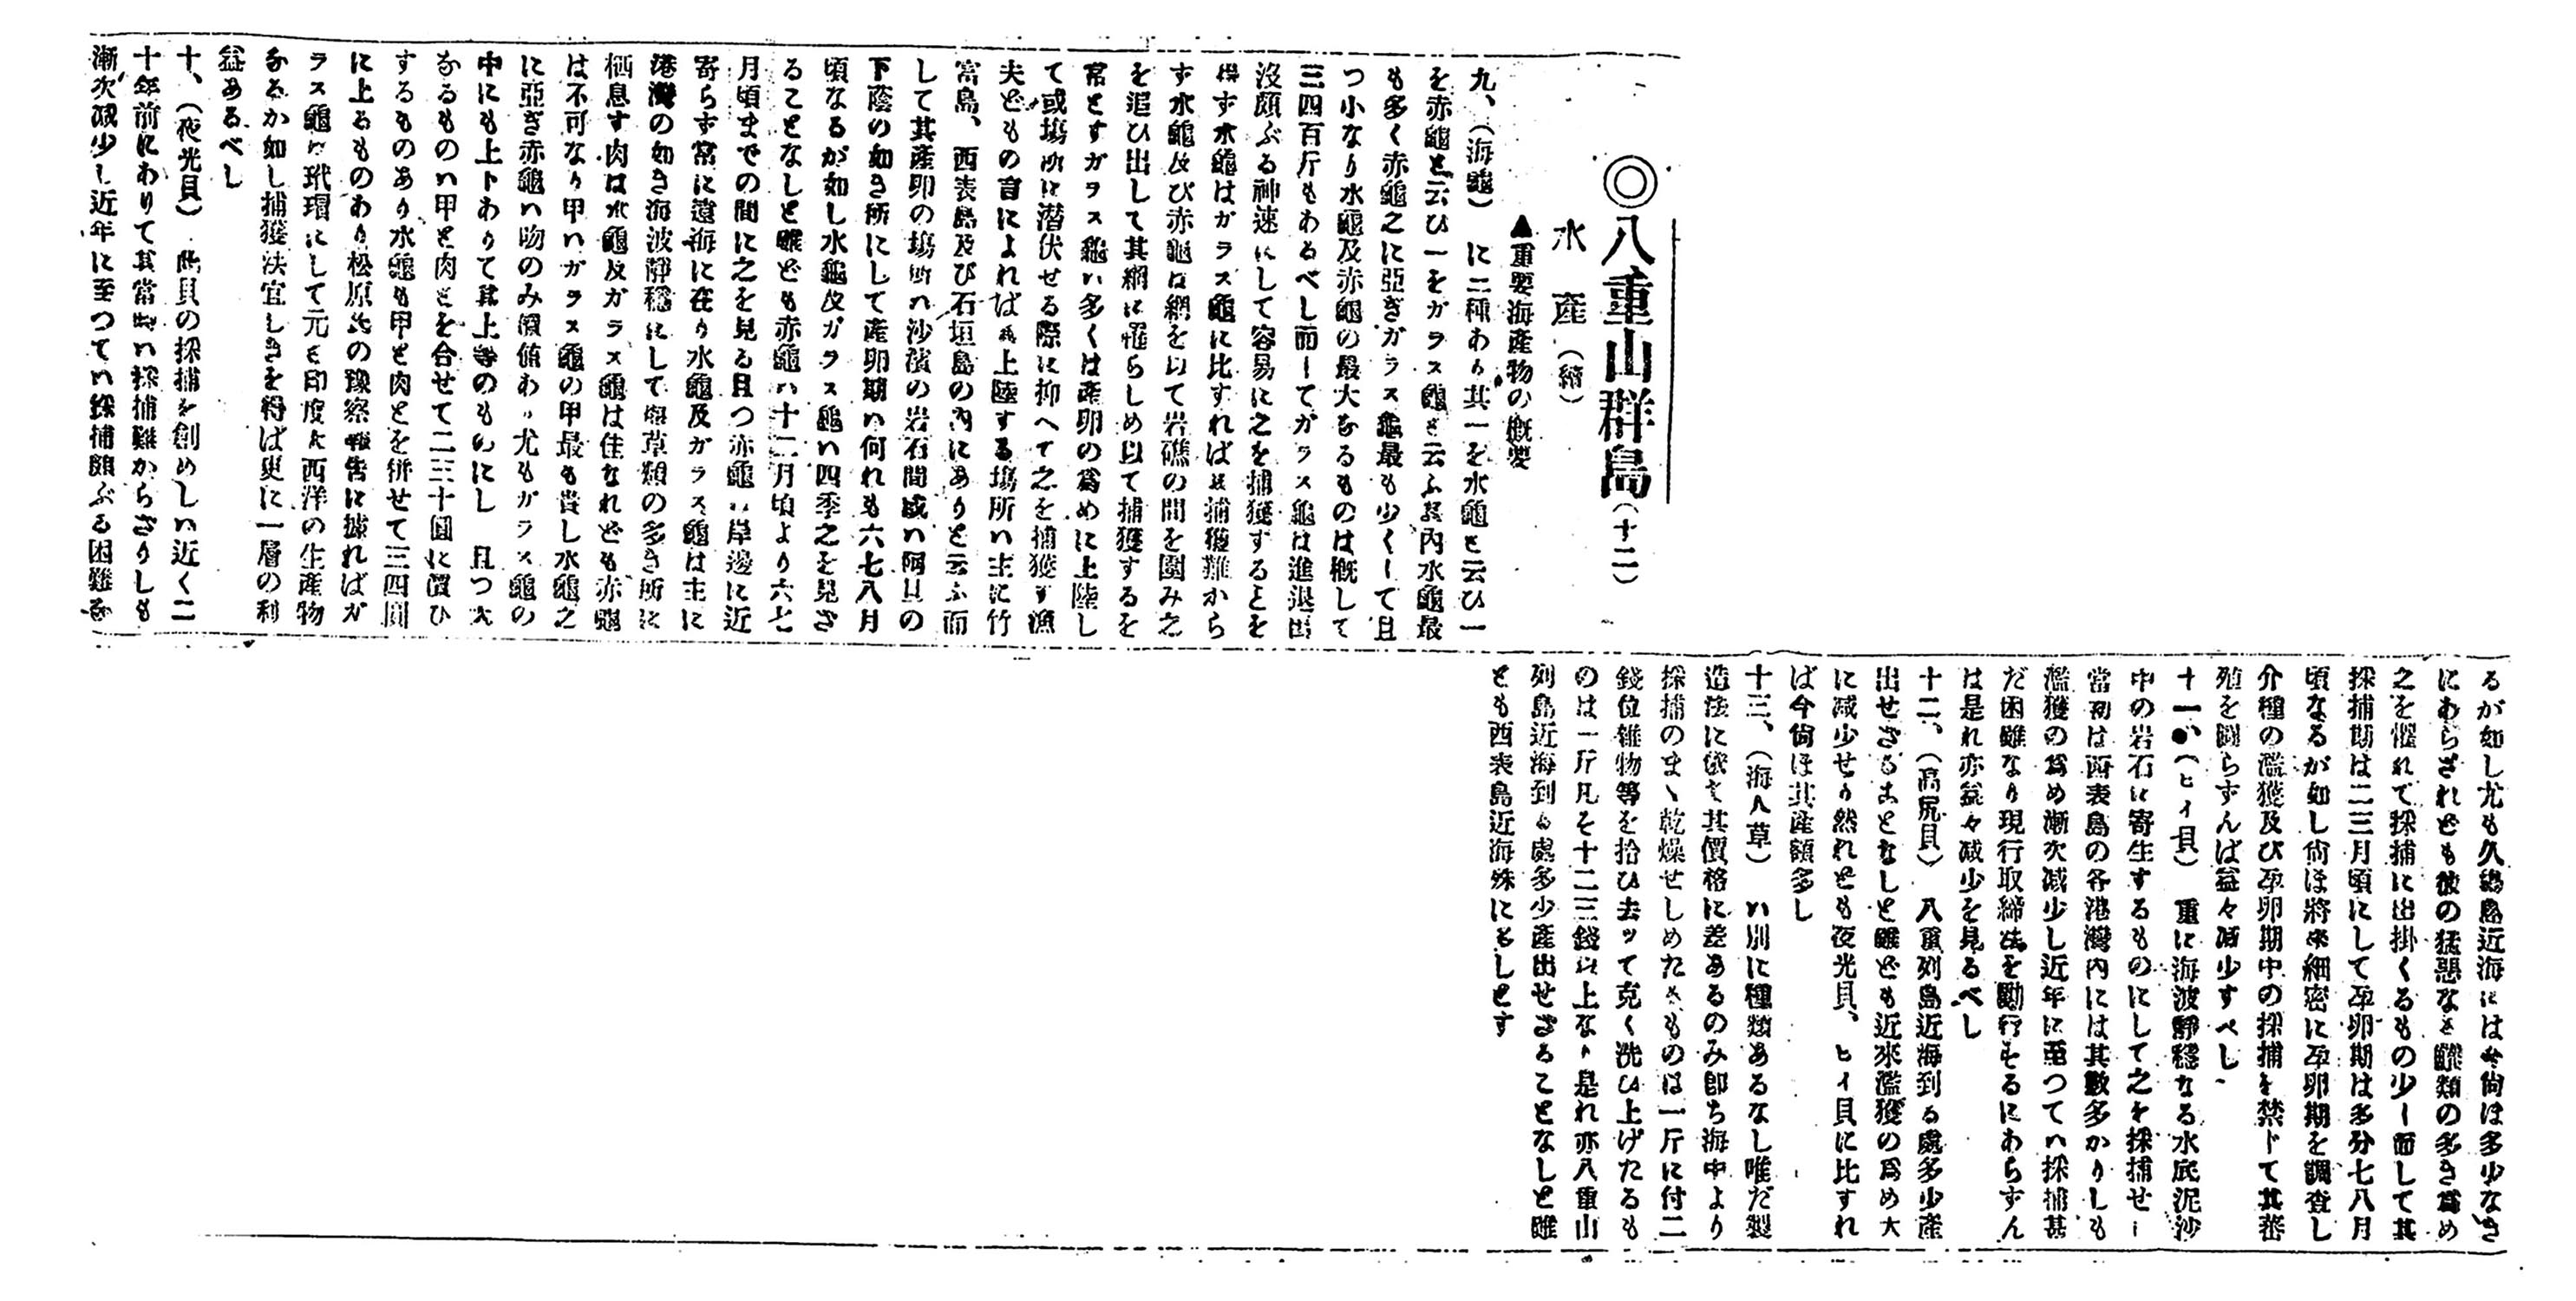 ◎八重山群島(十二)
水産(續)
▲重要海産物の概要
九、(海龜) に二種あり其一を水龜と云ひ一
を赤龜と云ひ一をガラス龜と云ふ其內水龜最
も多く赤龜之に亞ぎガラス龜最も少くして且
つ小なり水龜及赤龜の最大なるものは槪して
三四百斤もあるべし而してガラス龜は進退出
沒頗ぶる神速にして容易に之を捕獲することを
得ず水龜はガラス龜に比すれば捕獲難から
ず水龜及び赤龜は網を以て岩礁の間を圍み之
を追ひ出して其網に罹らしめ以て捕獲するを
常とすガラス龜ハ多くは產卵の爲めに上陸し
て或塲所に潜伏せる際に抑へて之を捕獲す漁
夫どもの言によれば上陸する塲所ハ主に竹
富島、西表島及び石垣島の內にありと云ふ而
して其產卵の塲所ハ沙濱の岩石間或ハ阿且の
下蔭の如き所にして產卵期ハ何れも六七八月
頃なるが如し水龜及ガラス龜ハ四季之を見ざ
ることなしと雖ども赤龜ハ十二月頃より六七
月頃までの間に之を見る且つ赤龜ハ岸邊に近
寄らず常に遠海に在り水龜及ガラス龜は主に
港灣の如き海波靜穩にして海草類の多き所に
栖息す肉は水龜及ガラス龜は佳なれども赤龜
は不可なり甲ハガラス龜の甲最も貴し水龜之
に亞ぎ赤龜ハ吻のみ價値あり尤もガラス龜の
中にも上下ありて其上等のものにし 且つ大
なるものハ甲と肉とを合せて二三十圓に價ひ
するものあり水龜も甲と肉とを併せて三四圓
に上るものあり松原氏の豫察報告に據ればガ
ラス龜は玳瑁にして元と印度大西洋の生產物
なるか如し捕獲法宜しきを得ば更に一層の利
益あるべし
十、(夜光貝) 此貝の採捕を創めしハ近く二
十年前にありて其當時ハ採捕難からざりしも
漸次减少し近年に至つてハ採捕頗ぶる困難な
るが如し尤も久島近海には今尙は多少なき
にあらざれども彼の猛惡なる鱶類の多き爲め
之を懼れて採捕に出掛くるもの少し而して其
採捕期は二三月頃にして孕卵期は多分七八月
頃なるが如し尙ほ將來細密に孕卵期を調査し
介種の濫獲及び孕卵期中の採捕を禁じて其蕃
殖を圖らずんば益々减少すべし
十一、(ヒイ貝) 重に海波靜穩なる水底泥沙
中の岩石に寄生するものにして之を採捕せし
當初は西表島の各港灣內には其數多かりしも
濫獲の爲め漸次减少し近年に至つてハ採捕甚
だ困難なり現行取締法を勵行するにあらずん
は是れ亦益々减少を見るべし
十二、(高尻貝) 八重列島近海到る處多少產
出せざることなしと雖ども近來濫獲の爲め大
に减少せり然れども夜光貝、ヒイ貝に比すれ
ば今尙ほ其產額多し
十三、(海人草) ハ別に種類あるなし唯だ製
造法に依て其價格に差あるのみ卽ち海中より
採捕のまヽ乾燥せしめたるものは一斤に付二
錢位雜物等を拾ひ去ツて克く洗ひ上げたるも
のは一斤凡そ十二三錢以上なり是れ亦八重山
列島近海到る處多少產出せざることなしと雖
ども西表島近海殊に多しとす